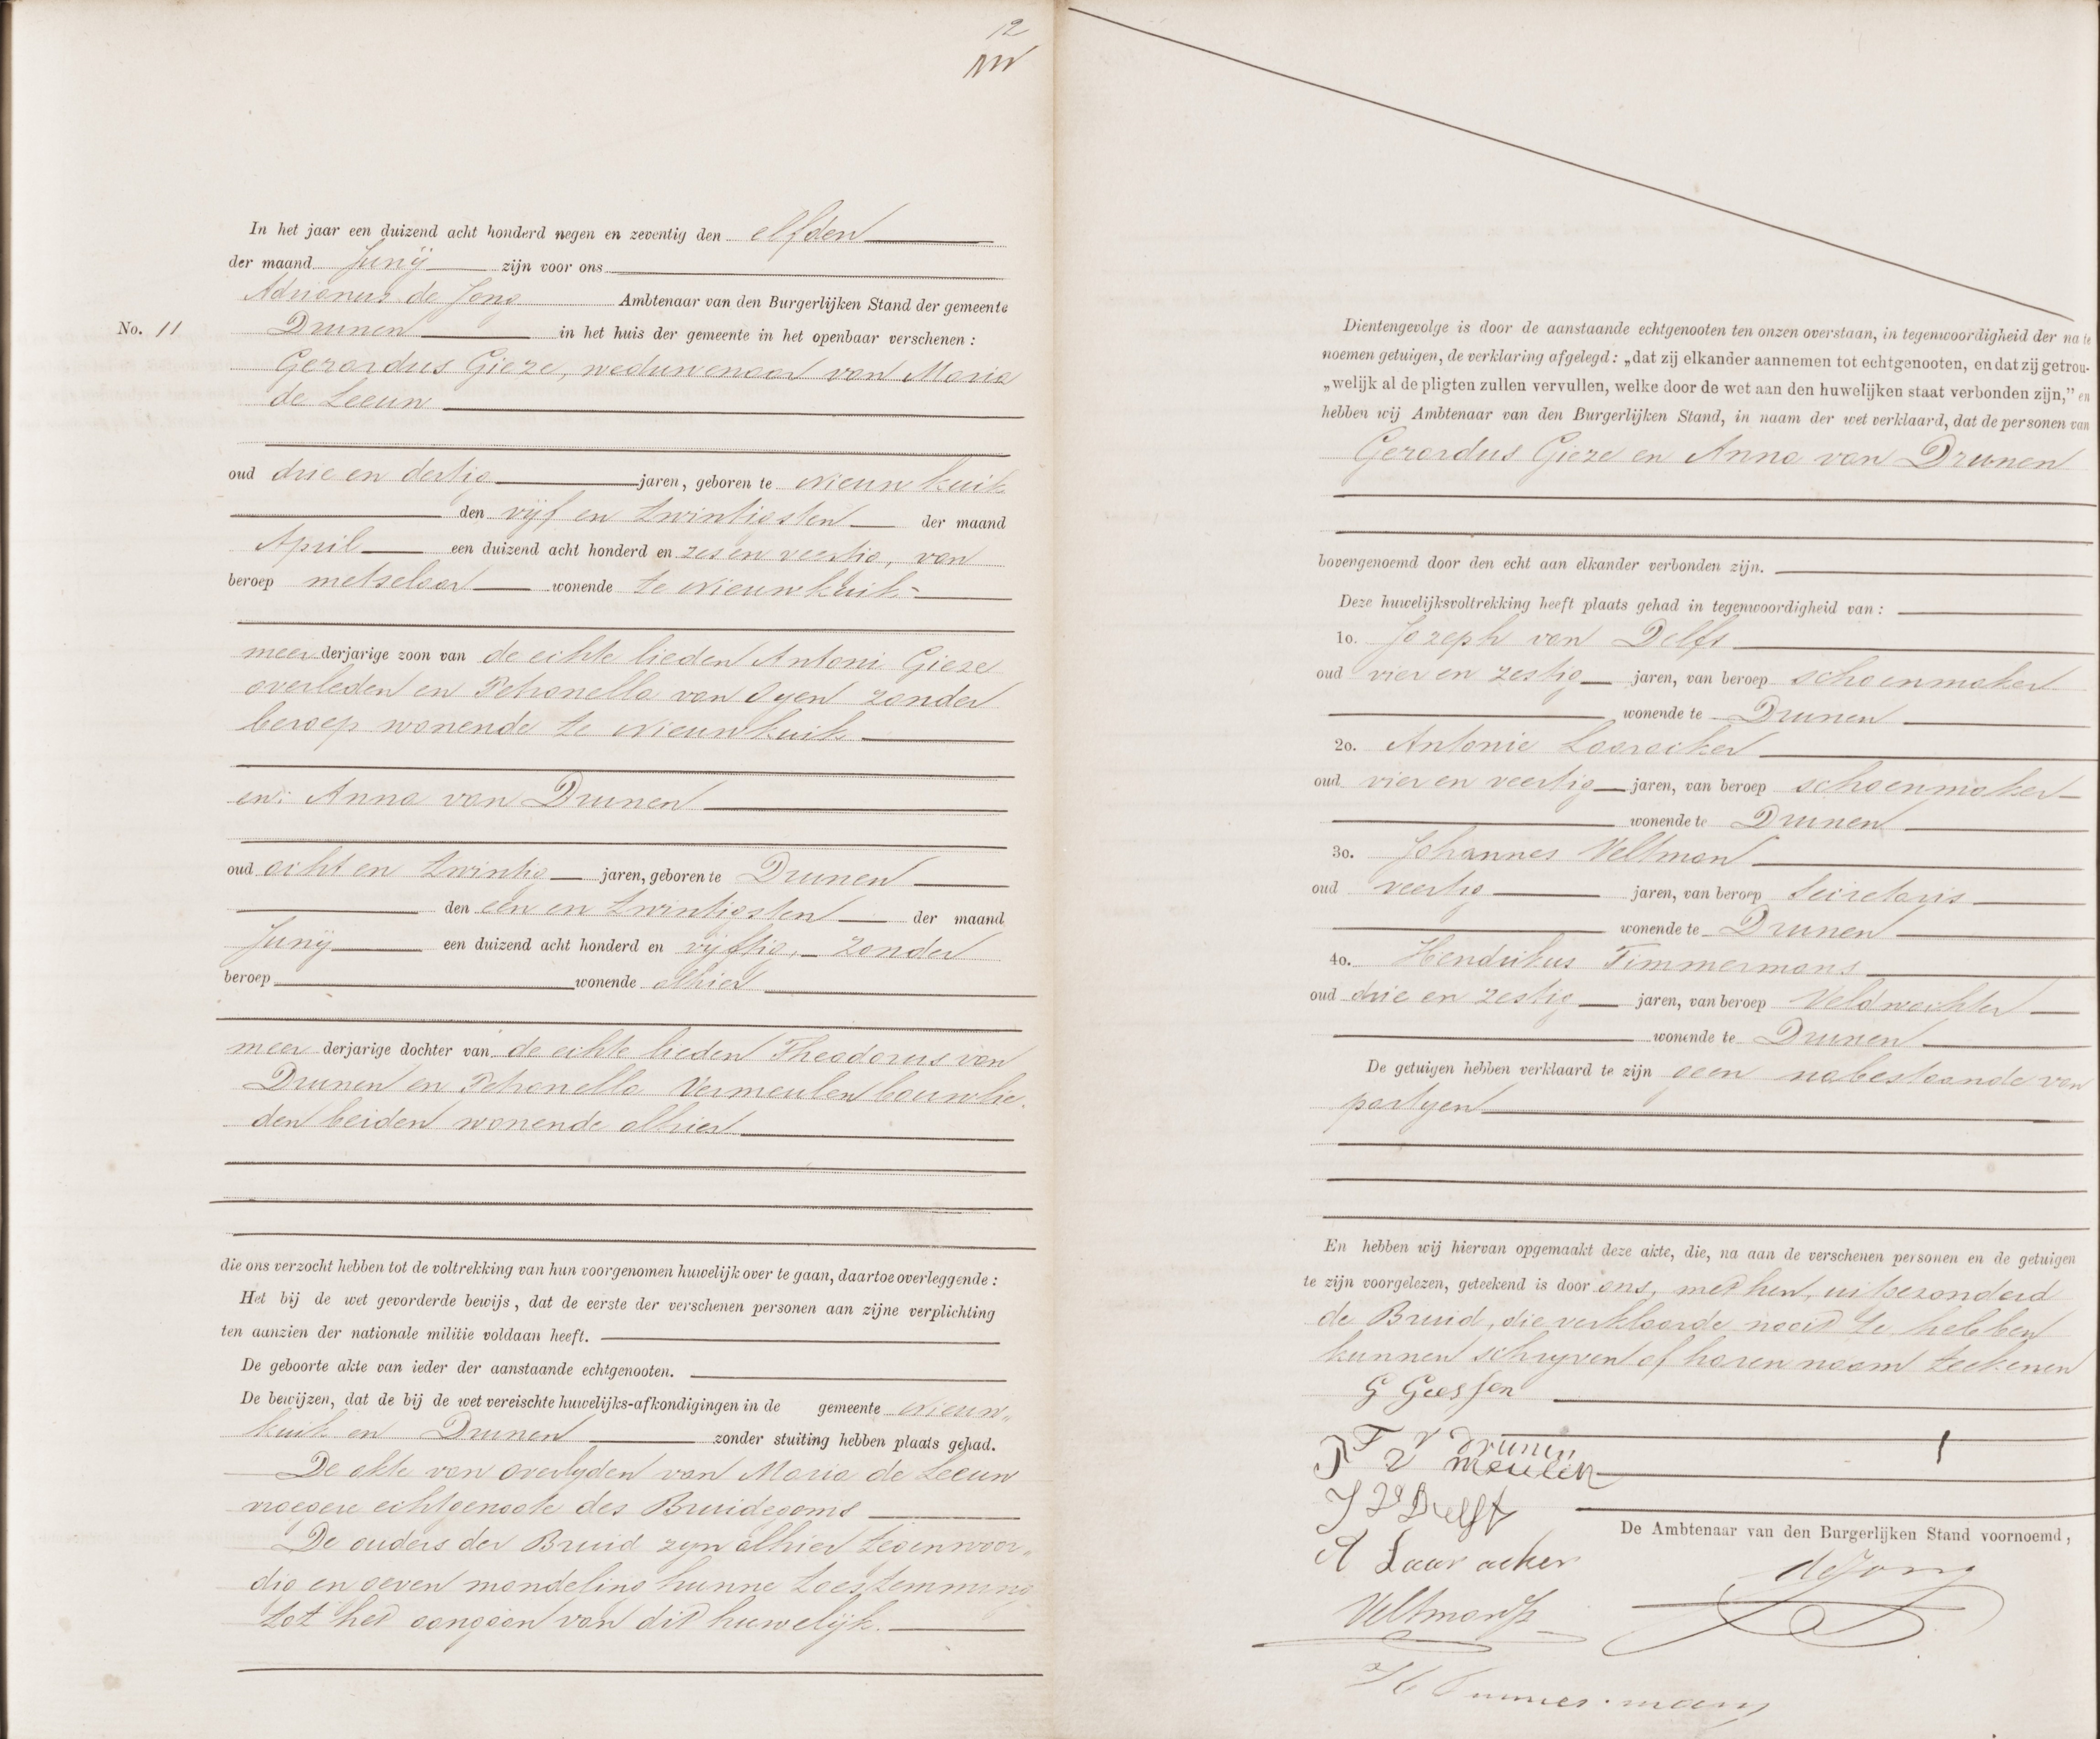 12
In het jaar een duizend acht honderd negen en zeventig den elfden
der maand Junij zijn voor ons
Adrianus de Jong Ambtenaar van den Burgerlijken Stand der gemeente
No. 11 Drunen in het huis der gemeente in het openbaar verschenen :
Gerardus Gieze, weduwenaar van Maria
de Leeuw
oud drie en dertig jaren, geboren te Nieuwkuik
den vijf en twintigsten der maand
April een duizend acht honderd en zes en veertig, van
beroep metselaar wonende te Nieuwkuik
meerderjarige zoon van de echte lieden Antoni Gieze
overleden en Petronella van Oyen zonder
beroep wonende te Nieuwkuik
en: Anna van Drunen
oud acht en twintig jaren, geboren te Drunen
den een en twintigsten der maand
Junij een duizend acht honderd en vijftig, zonder
beroep wonende alhier
meerderjarige dochter van de echte lieden Theodorus van
Drunen en Petronella Vermeulen bouwlie
den beiden wonende alhier
die ons verzocht hebben tot de voltrekking van hun voorgenomen huwelijk over te gaan, daartoe overleggende :
Het bij de wet gevorderde bewijs, dat de eerste der verschenen personen aan zijne verplichting
ten aanzien der nationale militie voldaan heeft.
De geboorte akte van ieder der aanstaande echtgenooten.
De bewijzen, dat de bij de wet vereischte huwelijks-afkondigingen in de gemeente Nieuw„
kuik en Drunen zonder stuiting hebben plaats gehad.
De akte van overlyden van Maria de Leeuw
vroegere echtgenoote des Bruidegoms
De ouders der Bruid zyn alhier tegenwoor„
dig en geven mondeling hunne toestemming
tot het aangaan van dit huwelijk.
Dientengevolge is door de aanstaande echtgenooten ten onzen overstaan, in tegenwoordigheid der na te
noemen getuigen, de verklaring afgelegd : „dat zij elkander aannemen tot echtgenooten, en dat zij getrou-
„welijk al de pligten zullen vervullen, welke door de wet aan den huwelijken staat verbonden zijn,” en
hebben wij Ambtenaar van den Burgerlijken Stand, in naam der wet verklaard, dat de personen van
Gerardus Gieze en Anna van Drunen
bovengenoemd door den echt aan elkander verbonden zijn.
Deze huwelijksvoltrekking heeft plaats gehad in tegenwoordigheid van :
1o. Jozeph van Delft
oud vier en zestig jaren, van beroep schoenmaker
wonende te Drunen
2o. Antonie Laaracker
oud vier en veertig jaren, van beroep schoenmaker
wonende te Drunen
3o. Johannes Veltman
oud veertig jaren, van beroep Secretaris
wonende te Drunen
4o. Hendrikus Timmermans
oud drie en zestig jaren, van beroep Veldwachter
wonende te Drunen
De getuigen hebben verklaard te zijn geen nabestaande van
partyen
En hebben wij hiervan opgemaakt deze akte, die, na aan de verschenen personen en de getuigen
te zijn voorgelezen, geteekend is door ons, met hen, uitgezonderd
de Bruid, die verklaarde nooit te hebben
kunnen schryven of haren naam teekenen
G
T v drunen
P v meulen
J v Delft
A Laar acker
De Ambtenaar van den Burgerlijken Stand voornoemd,
de Jong
Veltman
H Timmer.mans